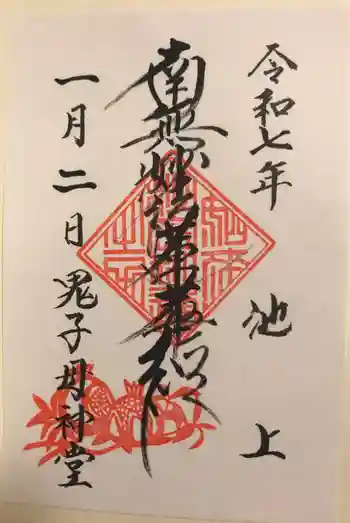 令和七年
池上
南無妙法蓮華経
一月二日
鬼子母神堂